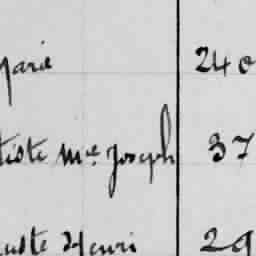 Marie 240
tiste Mce Joseph 37
uste Henri 29